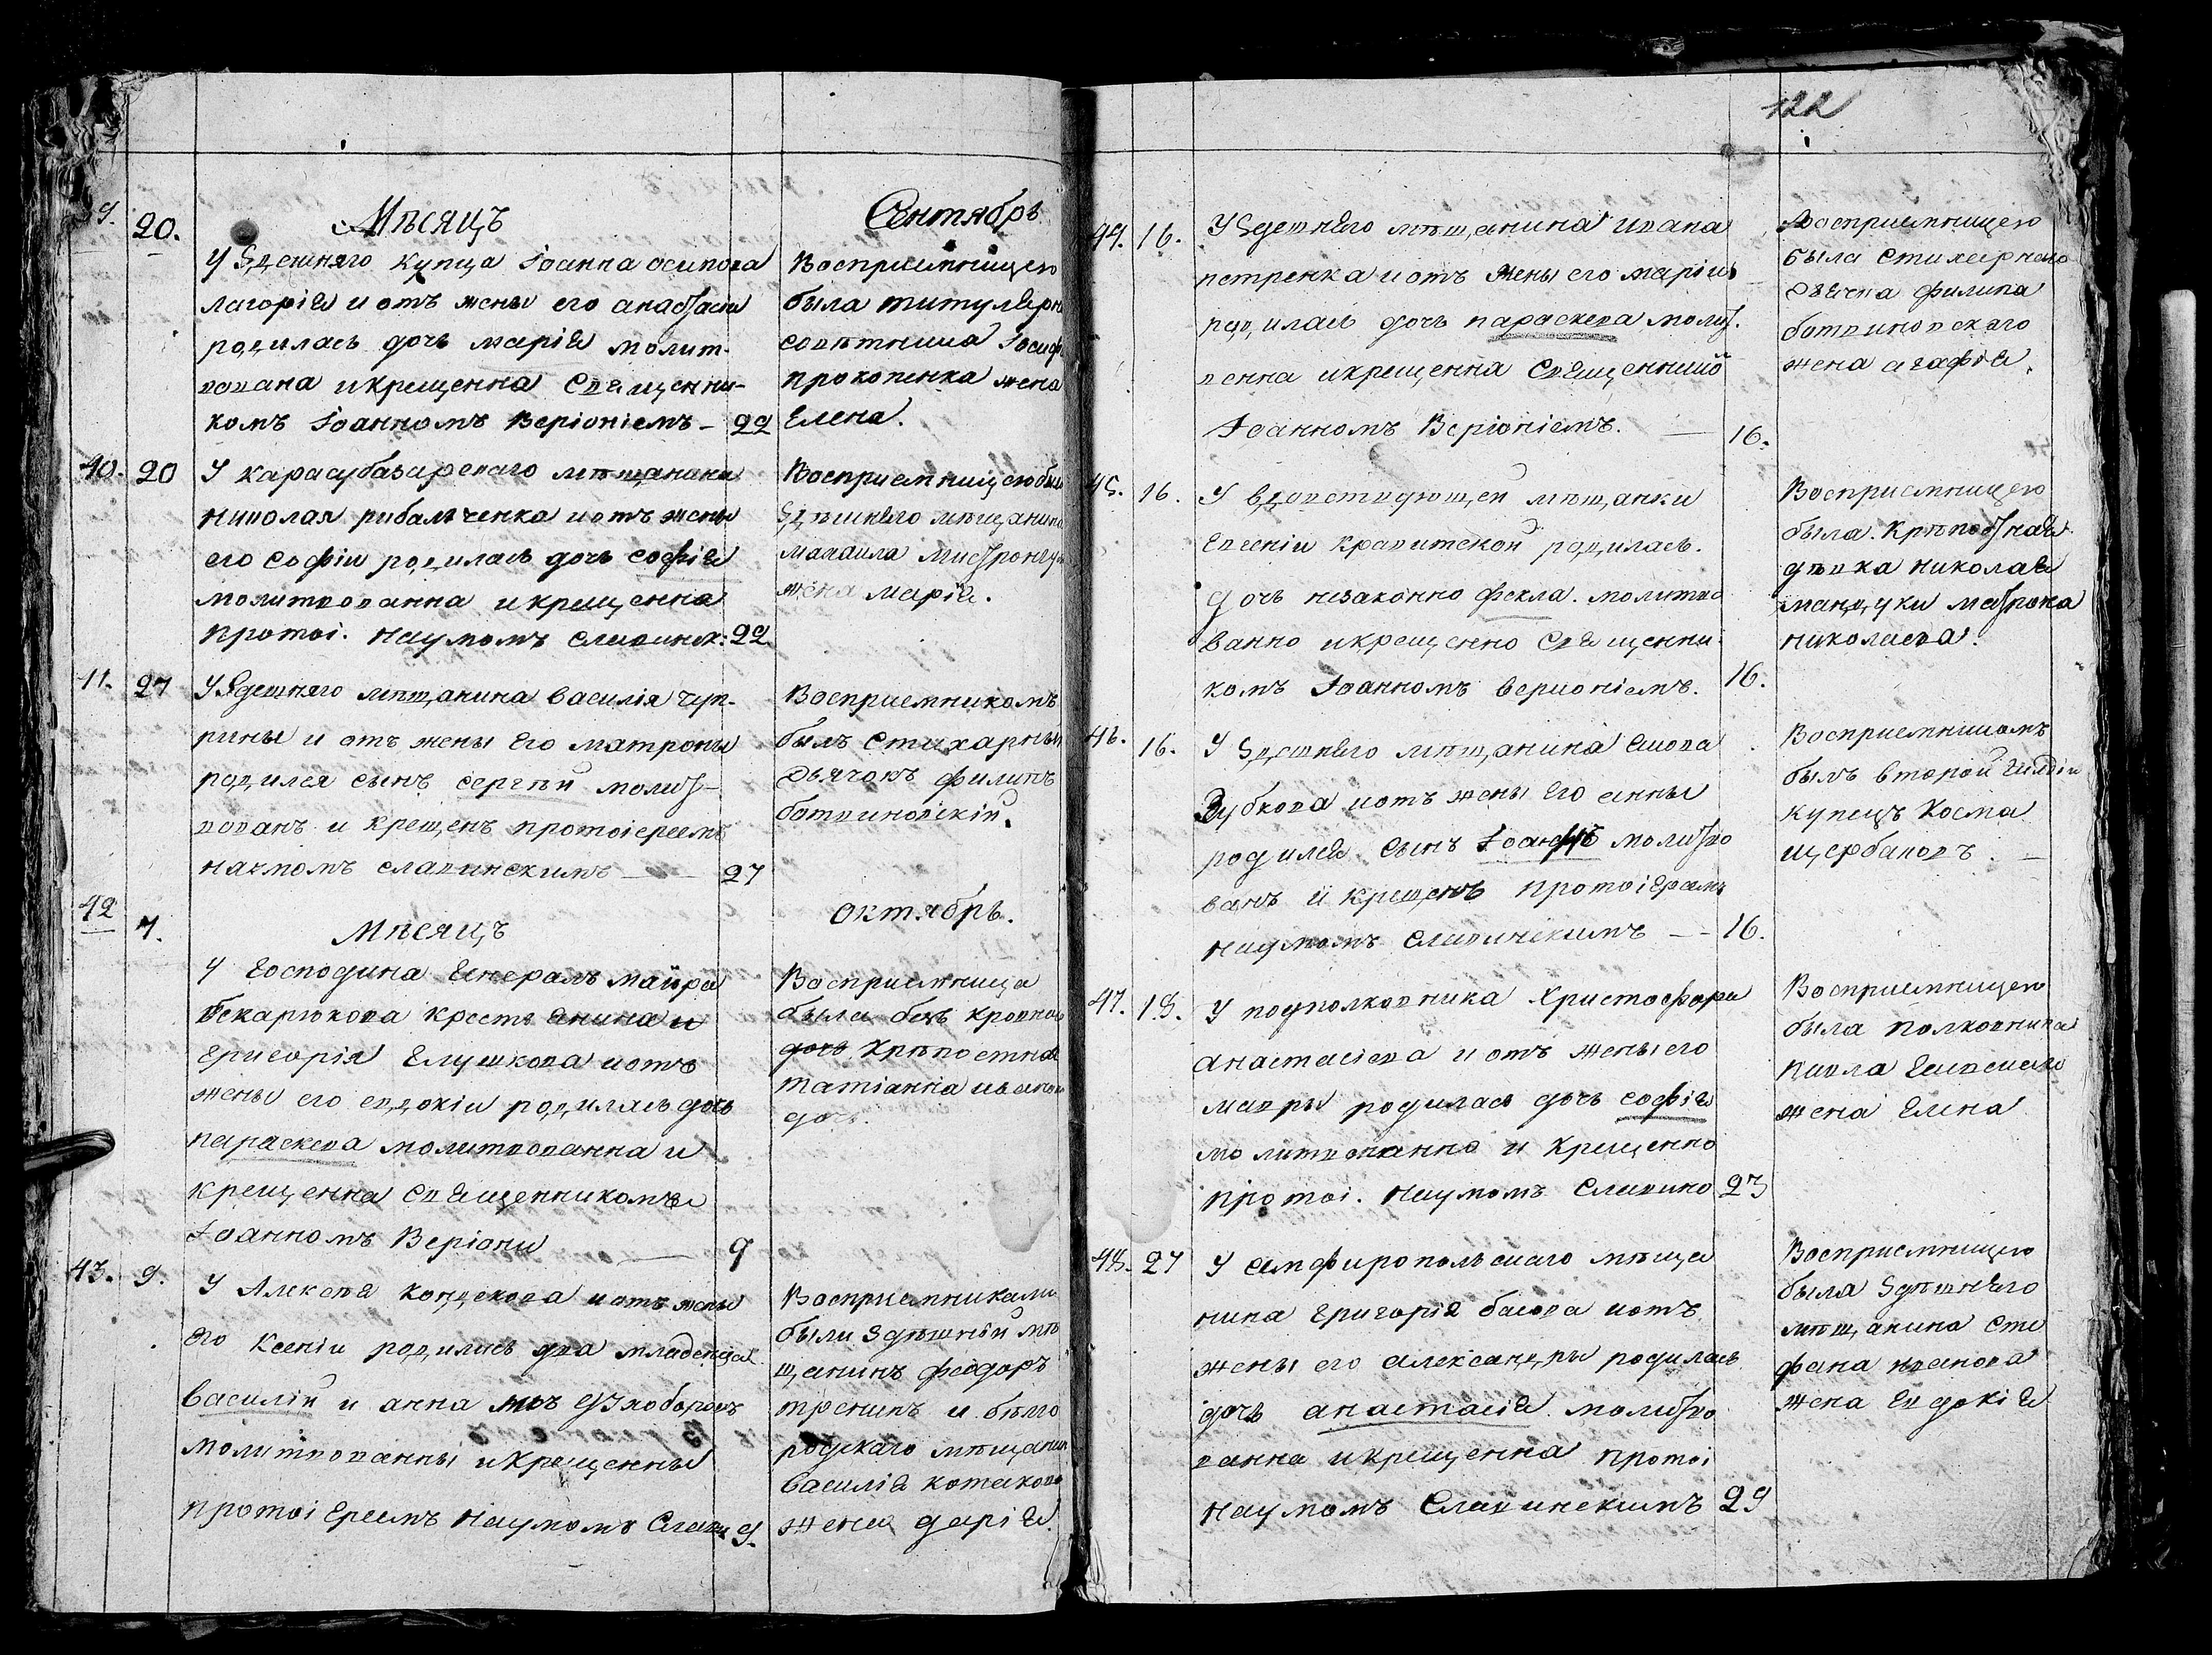 Мѣсяцъ Сентябрь
20.
У Здешняго купца Іоанна осипова
лагорія и отъ жены его анастасіи
родилась дочь марія молит-
вована и крещенна Священни-
комъ Іоанномъ Веріоніемъ - 22
Восприемницею
была титулярн
совѣтника Іосиф
прокопенка жена
Елена.
40. 20
У карасубазарскаго мѣщанина
николая рибальченка и отъ жены
его Софіи родилась дочь софія
молитвованна и крещенна
протоі. наумомъ славинск: 22
Восприемницею бы
Здѣшняго мѣщанина
михаила
жена марія.
41. 27
У Здешняго мѣщанина василія чуп-
рины и отъ жены Его матроны
родился сынъ сергѣй молит-
вованъ и крещенъ протоіереемъ
наумомъ славинскимъ — 27
Восприемникомъ
былъ Стихарный
Дьячокъ филипъ
ботвиновскій.
Мѣсяцъ октябрь.
42 7.
У Господина Генералъ маіора
Бекарюкова крестьянина
Григорія Глушкова и отъ
жены его евдокіи родилась дочь
параскева молитвованна и
крещенна священникомъ
Іоанномъ Веріони — 9
Восприемница
была
дочь Крѣпостная
татіанна иванов
дочь.
43. 9.
У Алексѣя кондскова и отъ жены
Его Ксеніи родились два младенца
василій и анна
молитвованны и крещенны
протоіереемъ наумомъ Слави 9.
Восприемниками
были Здѣшній мѣ
щанинъ феодоръ
тренинъ и бѣлго
родскаго мѣщанин
василія котакова
жена дарія.
122
44. 16.
У Здешняго мѣщанина ивана
петренка и отъ жены его маріи
родилась дочь параскева молит.
венна и крещенна Священникѡ
Іоанномъ Веріоніемъ. — 16.
Восприемницею
была стихарнаго
дьячка филипа
ботвиновскаго
жена агафія.
45. 16.
У вдовствующей мѣщанки
Евгеніи кравитской родилась.
дочь незаконно фекла. молитво
ванно и крещенно Священни-
комъ Іоанномъ верионіемъ. 16.
Восприемницею
была. Крѣпостная
дѣвка николая
мандуки матрона
николаева.
46. 16.
У Здешняго мѣщанина
Зубкова и отъ жены Его анны
родился сынъ молитво
ванъ и крещенъ протоіереемъ
наумомъ Славинскимъ — 16.
Восприемникомъ
былъ второй гилдіи
купецъ Косма
щербаковъ.
47. 18.
У подполковника Христофора
анастасіева и отъ жены его
мавры родилась дочь софія
молитвованна и крещенно
протоі. Наумомъ Славино 23
Восприемницею
была полковника
павла
жена Елена
48. 27
У Симфиропольскаго мѣща
нина григорія басова и отъ
жены его александры родилась
дочь анастасія. молитво
ванна и крещенна протоі
наумомъ Славинскимъ 29
Восприемницею
была Здѣшняго
мѣщанина Сте
фана иванова
жена Евдокія